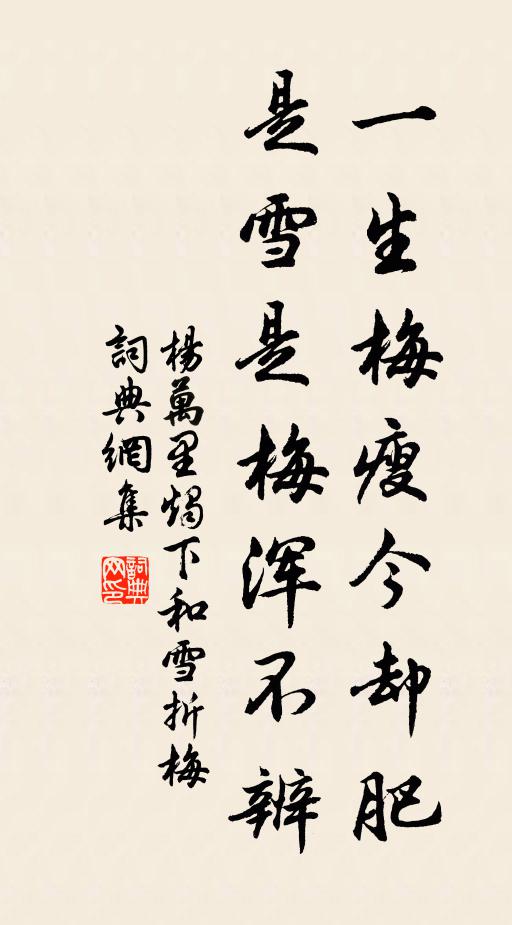 一生梅瘦今却肥
是雪是梅浑不辨
楊萬里燭下和雪折梅
詞典網集
詞典网印